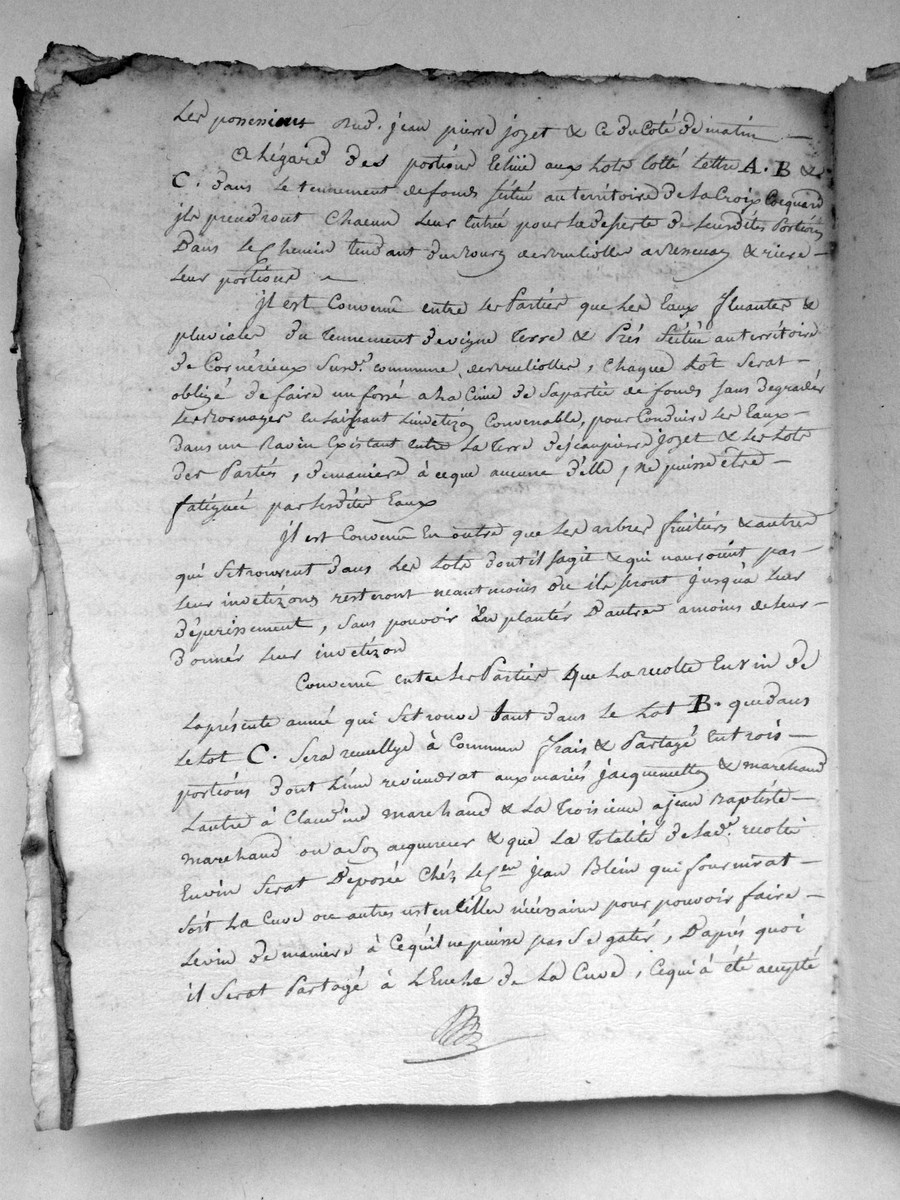 Les possessions dud. jean pierre jozet & ce du Coté de matin —
A légard des portions Echüe aux Lots Cotté Lettre A. B &
C. dans le tennement de fonds située au territoire de La Croix Cocquard
ils prendront Chacun leur entrée pour la deserte de leursdites Portions
Dans le Chemin tendant du Bourg de & riere —
leur portions —
jl est Convenu entre les Parties que les Eaux fluantes &
pluviales du Tennement de vigne Terre & Prés située au territoire
de Cornérieux Susd.e commune , Chaque Lot Serat —
obligé de faire un fossé a la Cime de Sa partie de fonds sans degrader
les Bornages en laissant Linvetizon Convenable, pour Conduire les Eaux —
dans un Ravin Existant entre La Terre de jean pierre jozet & les Lots
des Parties, de maniere à ceque aucune d'elle, ne puisse être —
fatiguée par lesdites Eaux
jl est Convenu En outre que les arbres fruitiers & autres
qui Setrouvent dans les Lots dont il sagit & qui nauroient pas —
leur invetizons resteront neantmoins ou ils sont jusqu'à leur
dépérissement, sans pouvoir En planter D'autres a moins de leur —
donner leur invetizon
Convenu entre les Parties que La recolte En vin de
La présente année qui Setrouve tant dans le Lot B. que dans
le Lot C. Sera receuillye à Commun frais & Partagé En trois —
portions dont L'une reviendrat aux mariés jacquemetton & marchand
Lautre à Claudine marchand & La Troisieme a jean Baptiste —
marchand ou a Son acquereur & que La Totalité de lad.e recolte
En vin Serat Déposée Chéz le Cen jean Blein qui fournirat —
soit La Cuve ou autres ustencilles nécessaire pour pouvoir faire —
Le vin de maniere à Cequ'il ne puisse pas Se gater, D'aprés quoi
il Serat Partagé à L'Enche de La Cuve, Ce qui à été accepté